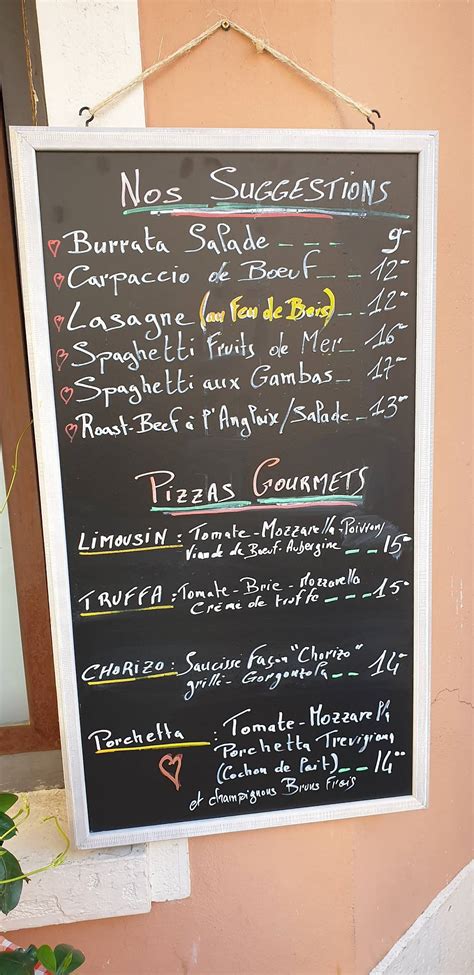 Nos SUGGESTIONS
Burrata Salade - - - 9-
Carpaccio de Bœuf - - 12-
Lasagne (au Feu de Bois) - 12-
Spaghetti Fruits de Mer - 16-
Spaghetti aux Gambas - 17-
Roast-Beef à l'Anglaix/Salade - 13-
PIZZAS GOURMETS
LIMOUSIN : Tomate-Mozzarella-Poivrons
Viande de Bœuf-Aubergine - - - 15-
TRUFFA : Tomate-Brie-Mozzarella
Crème de truffe - - - 15-
CHORIZO : Saucisse Façon "Chorizo"
grillé-Gorgonzola - - 14-
Porchetta : Tomate-Mozzarella
Porchetta Trevigiana
(Cochon de Lait) - - 14-
et champignons Bruns Frais